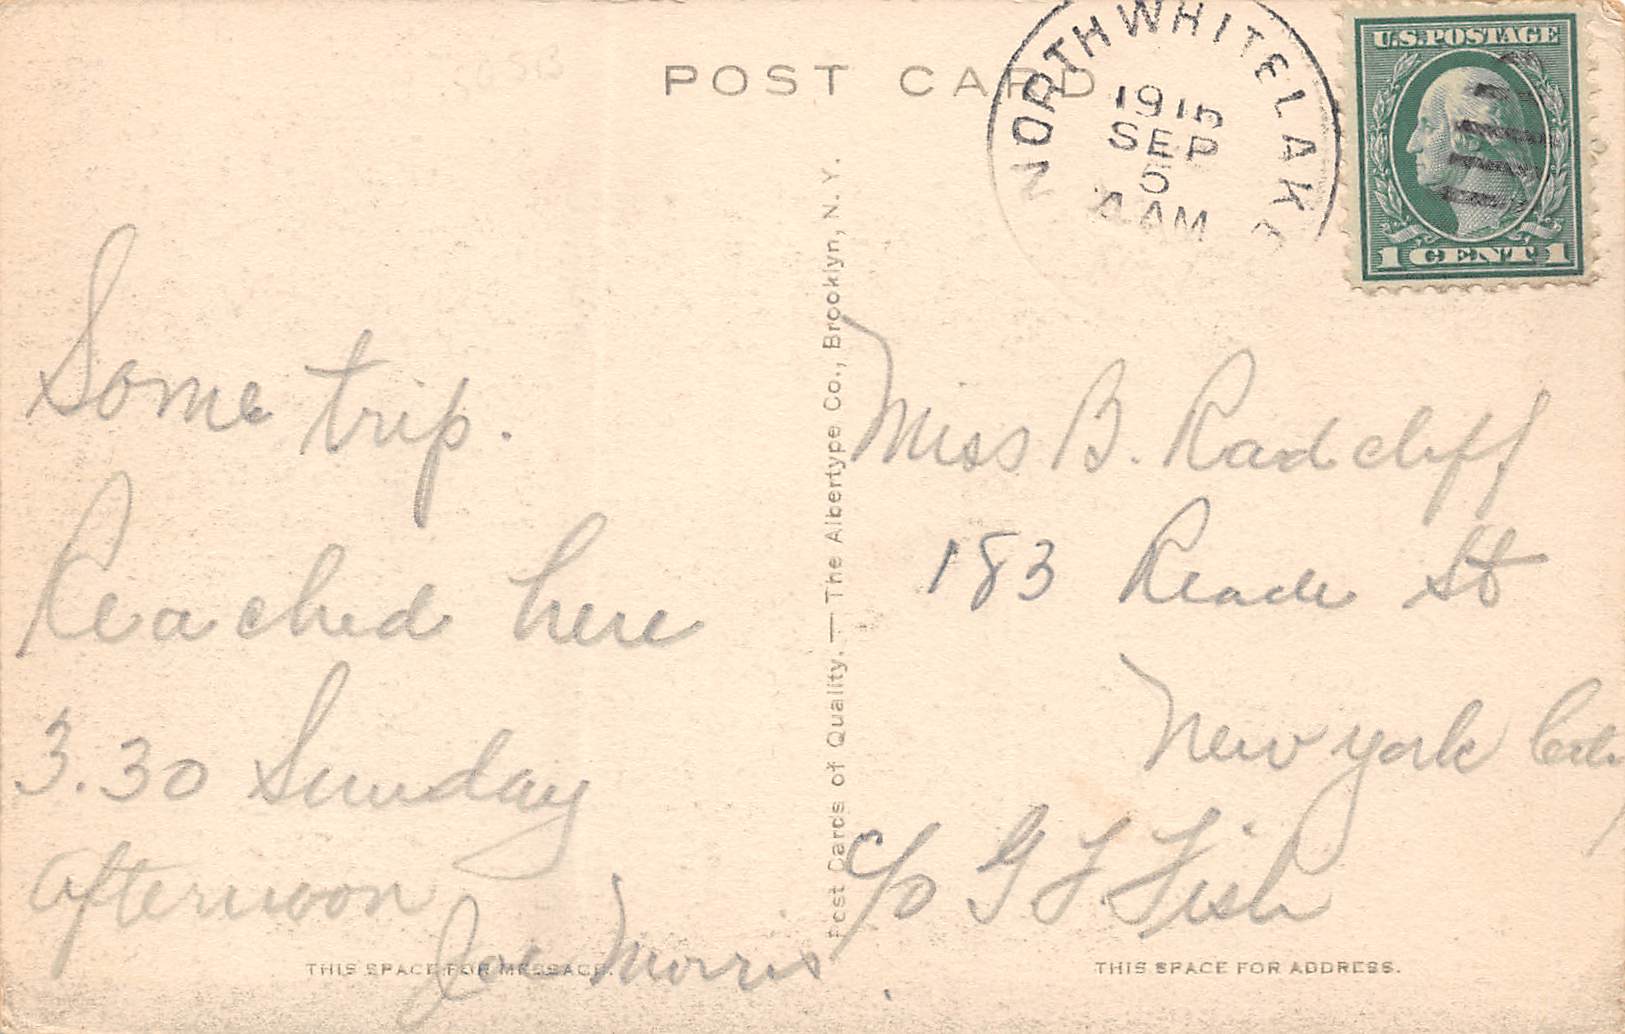 POST CARD
NORTH WHITE LAKE
SEP
5
AM
U.S. POSTAGE
1 CENT 1
Some trip.
Reached here
3.30 Sunday
afternoon
Joe Morris
THIS SPACE FOR MESSAGE.
Post Cards of Quality. — The Albertype Co., Brooklyn, N. Y.
Miss B. Radcliff
183 Reade St
New York City
c/o G F Fish
THIS SPACE FOR ADDRESS.